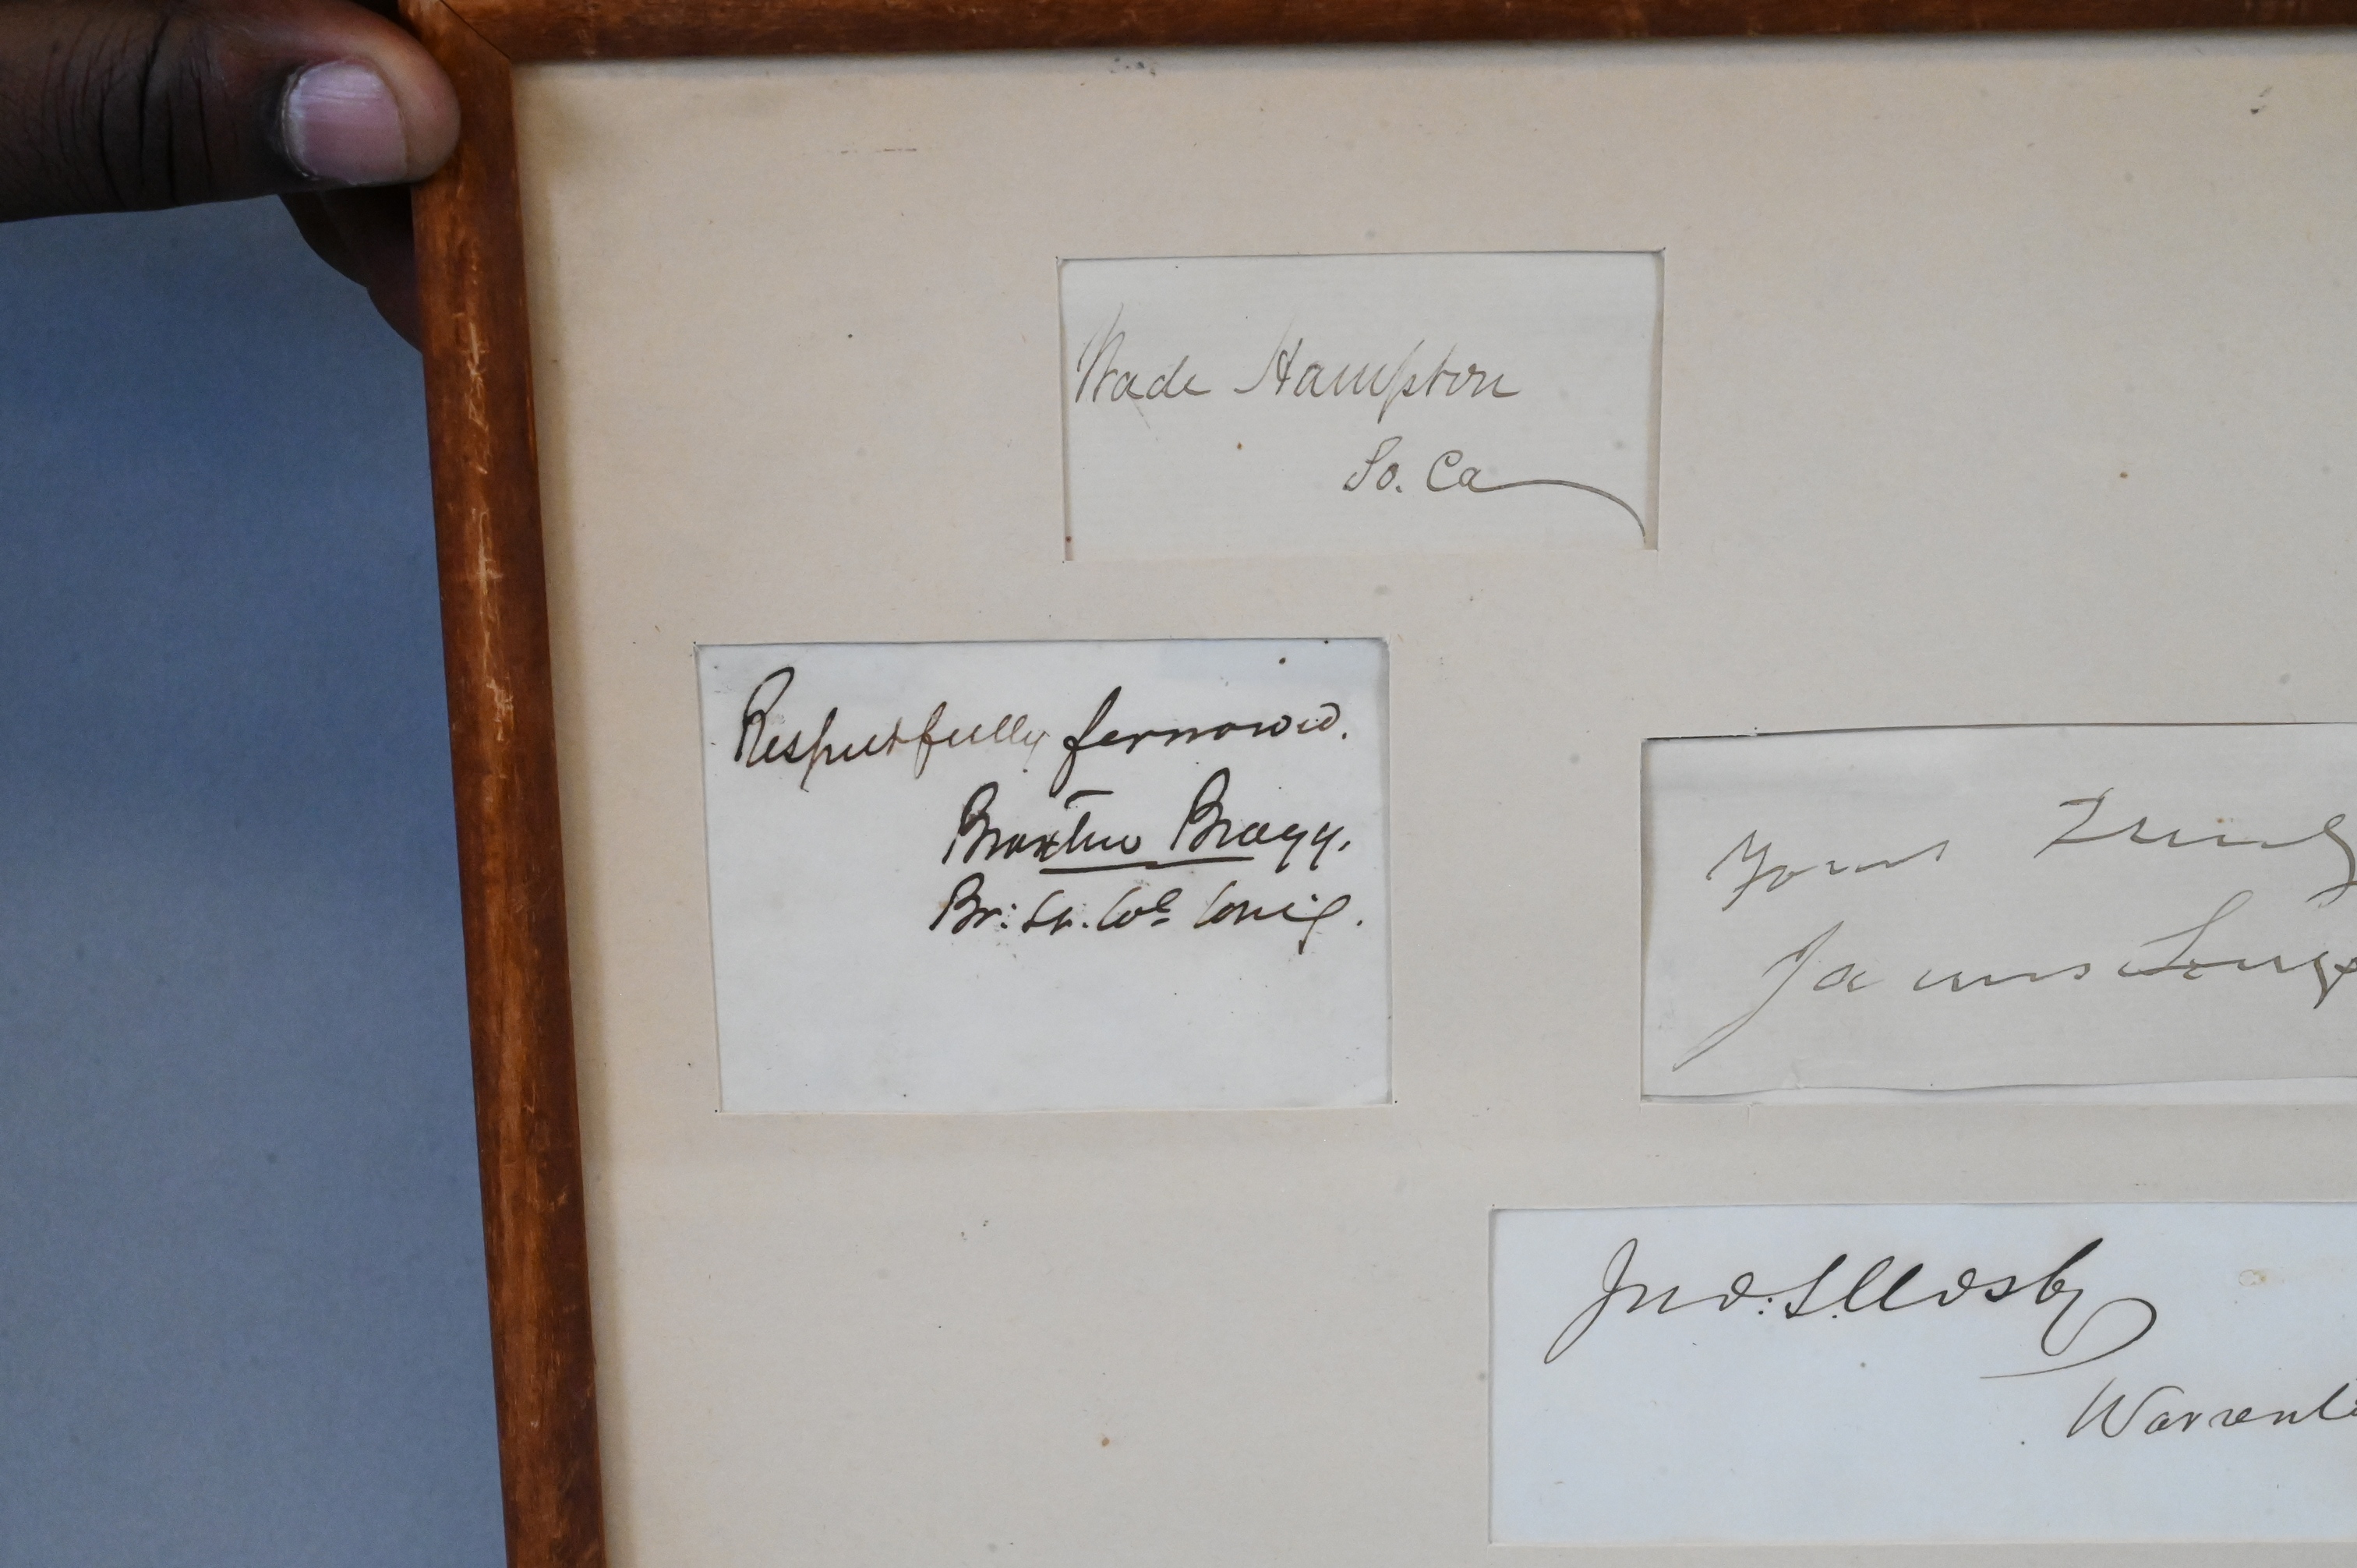 Wade Hampton
So. Ca
Respectfully forward.
Braxton Bragg.
Br: Gn. Com
Yours Truly
James Long
Jno: S. Mosby
Warrent